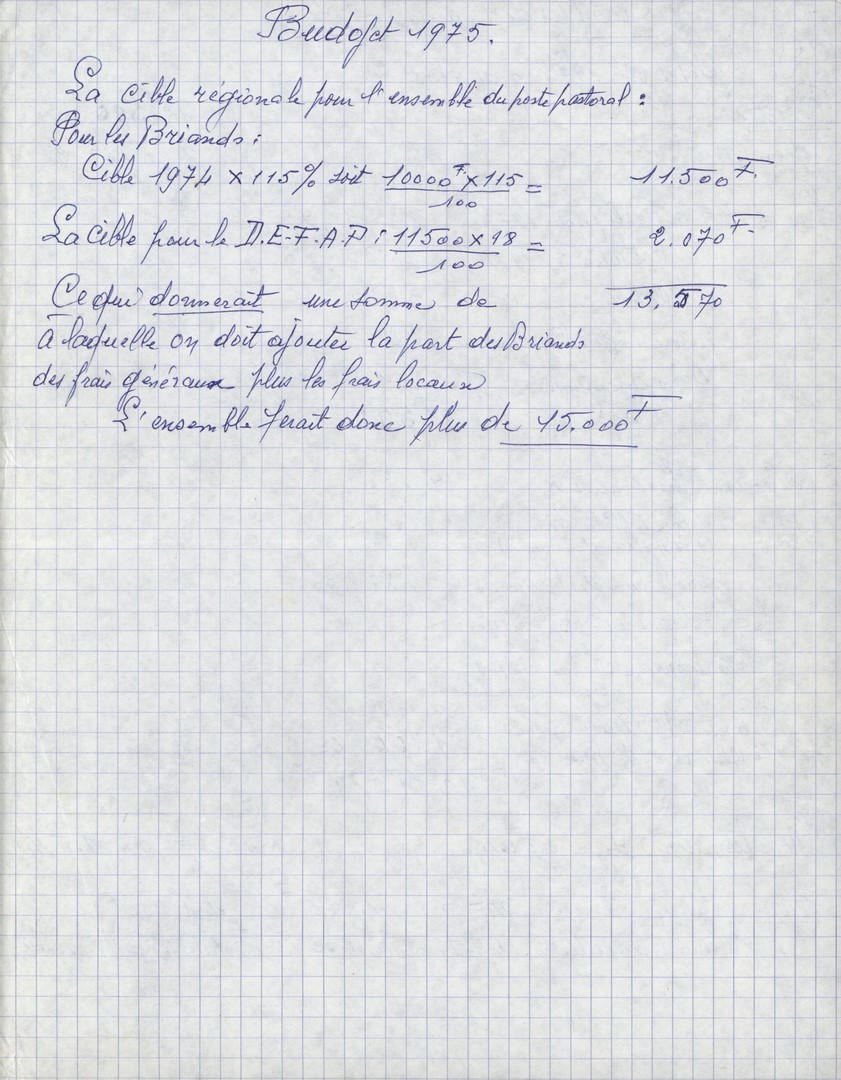 Budget 1975.
La cible régionale pour l'ensemble du poste pastoral :
Pour les Briands :
Cible 1974 x 115% soit 10000F. x 115 / 100 = 11.500F.
La cible pour le D.E.F.A.P : 11500 x 18 / 100 = 2.070F.
Ce qui donnerait une somme de 13.570
à laquelle on doit ajouter la part des Briands
des frais généraux plus les frais locaux
L'ensemble ferait donc plus de 15.000F